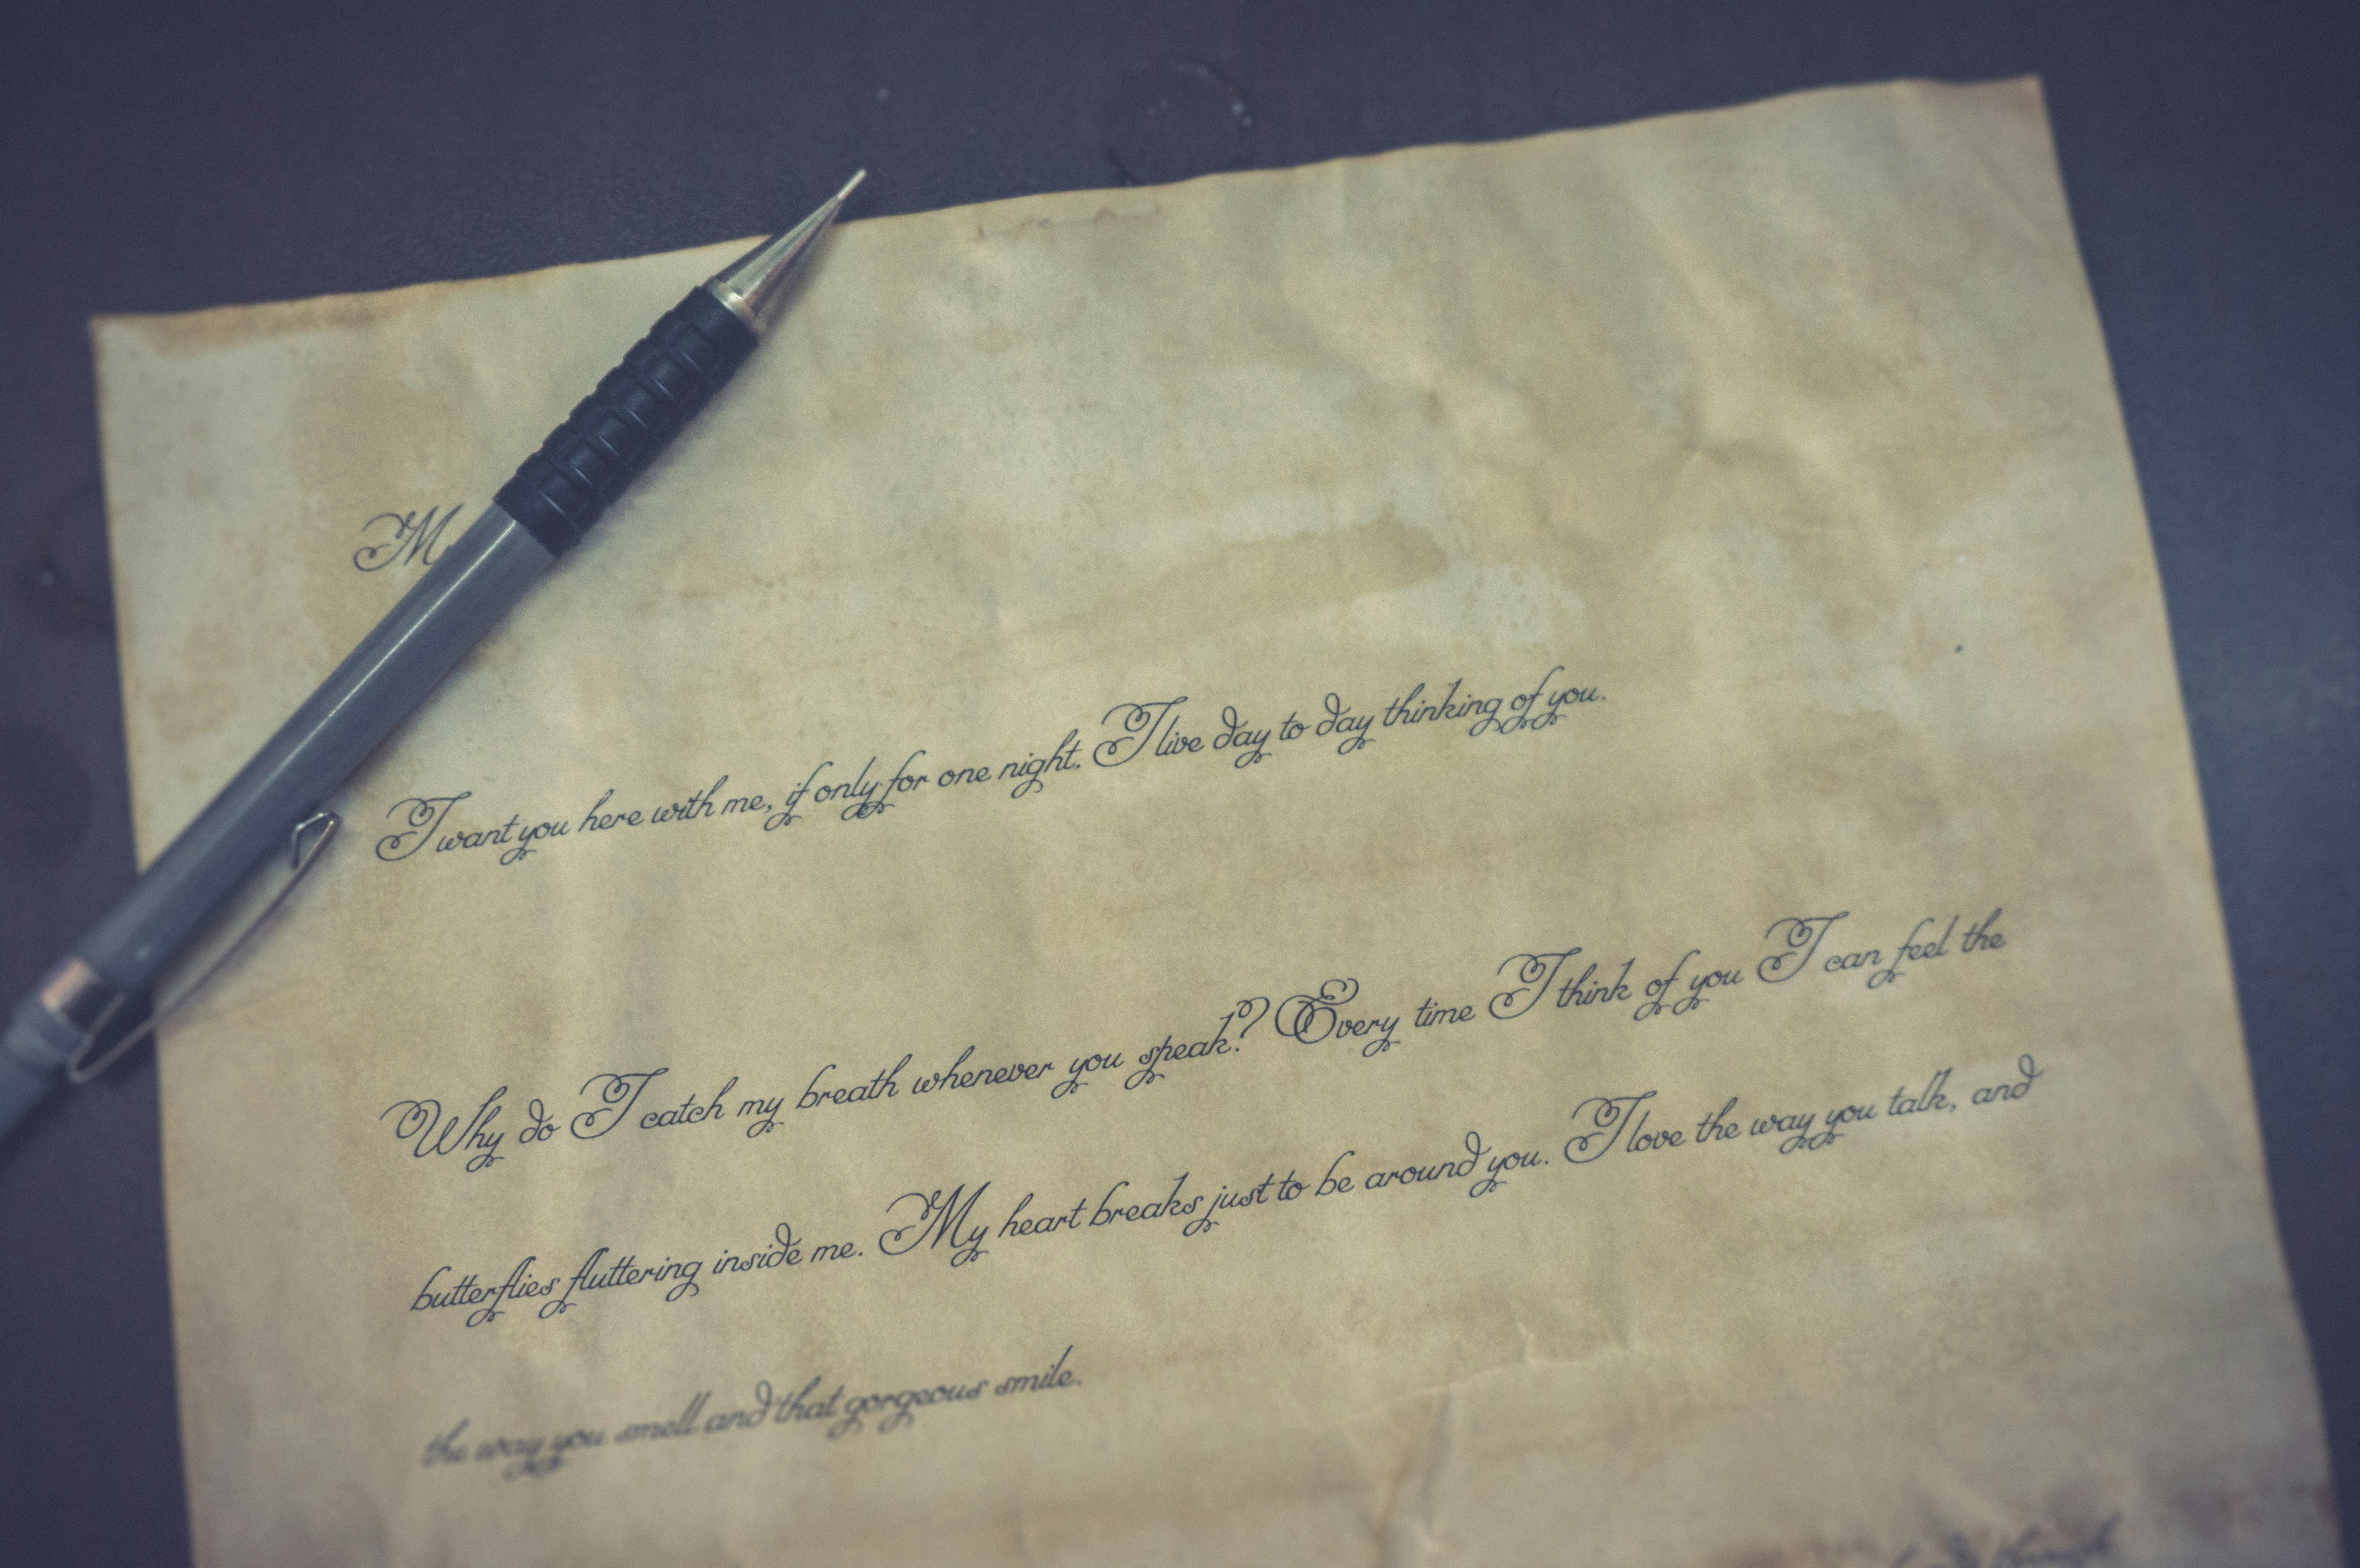 M
I want you here with me, if only for one night. I live day to day thinking of you.
Why do I catch my breath whenever you speak? Every time I think of you I can feel the
butterflies fluttering inside me. My heart breaks just to be around you. I love the way you talk, and
the way you smell and that gorgeous smile.